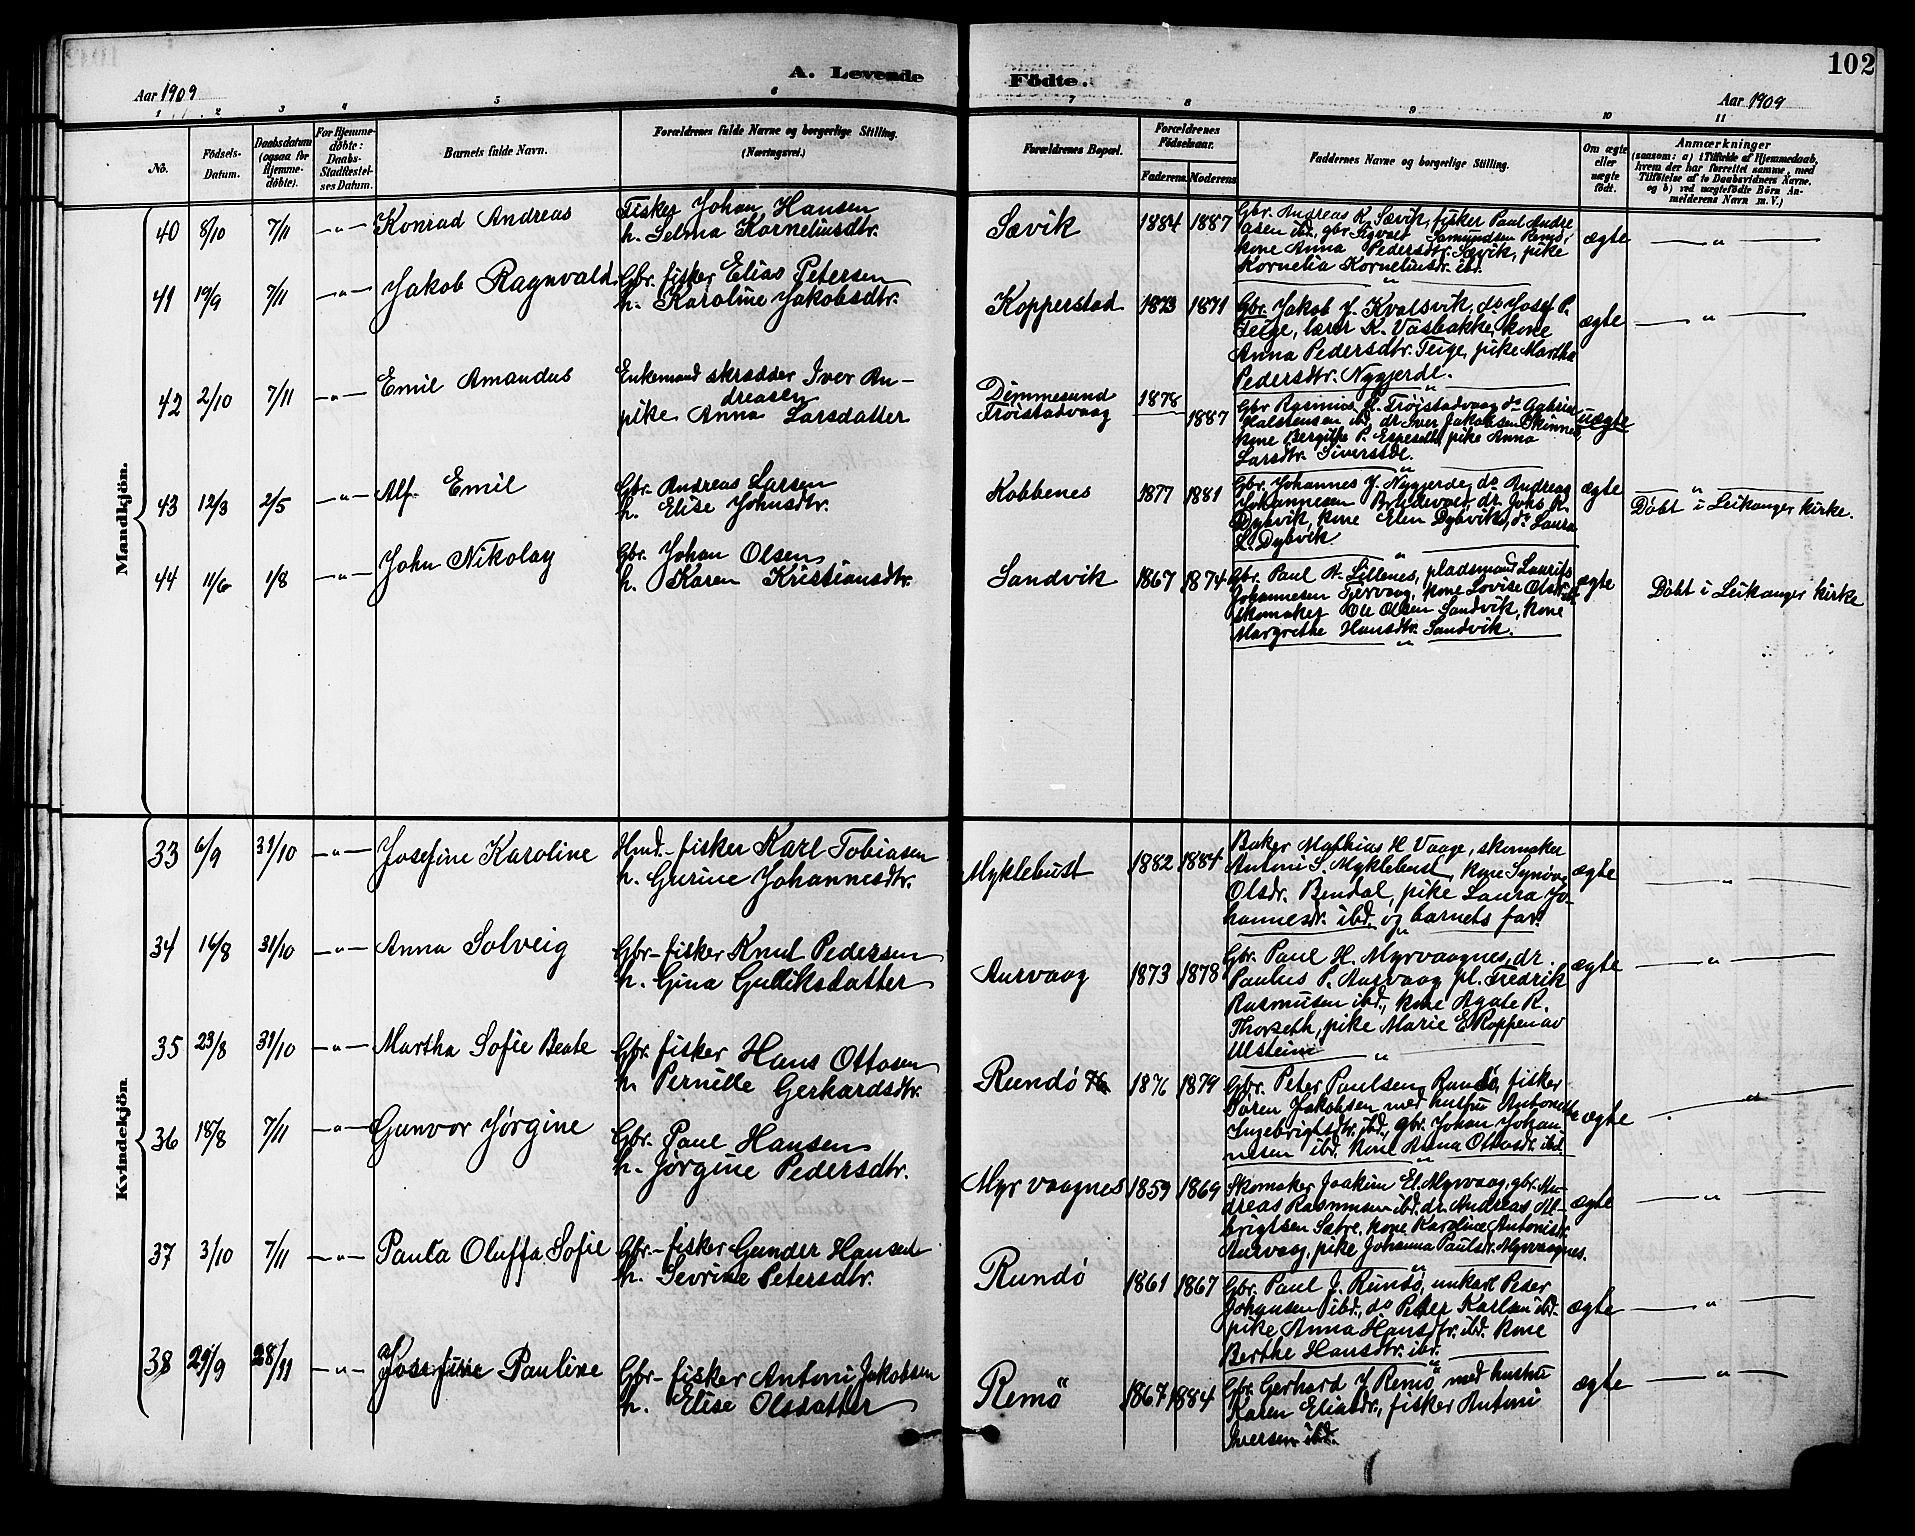 102
A. Levende Födte.
Aar 1909
Aar 1909
1 2 3 4 5 6 7 8 9 10 11
No.
Födsels-Datum.
Daabsdatum (ogsaa for Hjemme-døbte).
For Hjemme-døbte: Daabs-Stadfæstelses Datum.
Barnets fulde Navn.
Forældrenes fulde Navne og borgerlige Stilling. (Næringsvei.)
Forældrenes Bopæl.
Forældrenes Födselsaar.
Faderens. Moderens.
Faddernes Navne og borgerlige Stilling.
Om ægte eller uægte födt.
Anmærkninger
(saasom: a) i Tilfælde af Hjemmedaab, hvem der har forrettet samme, med Tilföielse af to Daabsvidners Navne. og b) ved uægtefödte Börn Anmelderens Navn m. V.)
Mandkjön.
40 8/10 7/11 —"— Konrad Andreas
Fisker Johan Hansen
h. Selma Korneliusdtr.
Sævik 1884 1887
Gbr. Andreas K. Sævik, fisker Paul Andre
asen ibd., gbr. Sigvalt Samundsen Remö,
kone Anna Pedersdtr. Sævik, pike
Kornelia Korneliusdr. ibd.
ægte —"—
41 19/9 7/11 —"— Jakob Ragnvald
Gbr. fisker Elias Petersen
h. Karoline Jakobsdtr.
Kopperstad 1873 1871
Gbr. Jakob J. Kvalsvik, do Josef P.
Teige, lærer K. Vasbakke, kone
Anna Pedersdtr. Teige, pike Martha
Pedersdtr. Nygjerde.
ægte —"—
42 2/10 7/11 —"— Emil Amandus
Enkemand skrædder Iver An-
dreasen
pike Anna Larsdatter
Dimmesund
Tröistadvaag
1878
1887
Gbr Rasmus Tröistadvaag do Gabriel
Kalstensen ibd, dr. Iver Jakobsen Skinnes,
kone Bergitte P. Espeseth, pike Anna
Larsdtr. Siverstöl.
uægte
43 12/3 2/5 —"— Alf Emil
Gbr. Andreas Larsen
h. Elise Johnsdtr.
Kobbenes 1877 1881
Gbr. Johannes J. Nygjerde, do Andreas
Johannesen dr. Johs K.
Dybvik, kone Elen Dybvik, do Laura
L. Dybvik
ægte —"—
Döbt i Leikanger kirke.
44 11/6 1/8 —"— John Nikolay
Gbr. Johan Olsen
h. Karen Kristiansdtr.
Sandvik 1867 1874
Gbr. Paul A. Lillenes, pladsmand Laurits
Johannesen Tjervaag, kone Lovise Olsdtr ibd
skomaker Ole Olsen Sandvik, kone
Margrethe Hansdtr. Sandvik.
ægte
Döbt i Leikanger kirke
Kvindekjön.
33 6/9 31/10 —"— Josefine Karoline
Hmd.- fisker Karl Tobiasen
h. Gurine Johannesdtr.
Myklebust 1882 1884
Baker Mathias H Vaage, skomaker
Antoni S. Myklebust, kone Synöve
Olsdr. Bendal, pike Laura Jo-
hannesdr. ibd. og barnets far.
ægte —"—
34 16/8 31/10 —"— Anna Solveig
Gbr- fisker Knut Pedersen
h. Gina Gulliksdatter
Aurvaag 1873 1878
Gbr. Paul H. Myrvaagnes, dr.
Paulus P. Aurvaag pl. Fredrik
Rasmusen ibd., kone Agate R.
Thorseth, pike Marie E Koppen av
Ulstein
ægte —"—
35 23/8 31/10 —"— Martha Sofie Beate
Gbr. fisker Hans Ottosen
h. Pernille Gerhardsdtr.
Rundö 1876 1879
Gbr. Peter Paulsen Rundö, fisker
Sören Jakobsen med hustru Antonette
Ingebrigtsdtr. ibd., gbr. Johan Johan
nesen ibd. kone Anna Ottosdr. ibd.
ægte —"—
36 18/8 7/11 —"— Gunvor Jørgine
Gbr. Paul Hansen
h. Jørgine Pedersdtr.
Myrvaagnes 1859 1869
Skomaker Joakim El. Myrvaag, gbr. An-
dreas Rasmusen ibd. dr. Andreas In-
brigtsen Sætre, kone Karoline Antonisdr.
Aurvaag, pike Johanna Paulsdr. Myrvaagnes.
ægte —"—
37 3/10 7/11 —"— Paula Oluffa Sofie
Gbr.- fisker Gunder Hansen
h. Sevrine Petersdtr.
Rundö 1861 1867
Gbr. Paul J. Rundö, unkarl Peder
Johansen ibd., do Peder Karlsen ibd.
pike Anna Hansdtr. ibd. kone
Berthe Hansdtr. ibd.
ægte —"—
38 29/9 28/11 —"— Josefine Pauline
Gbr- fisker Antoni Jakobsen
h. Elise Olsdatter
Remö 1867 1884
Gbr. Gerhard J Remö med hustru
Karen Eliasdr., fisker Antoni
Iversen ibd.
ægte —"—